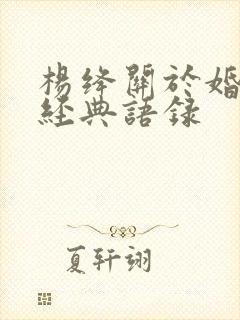 楊绛關於婚
經典語録
夏轩翊